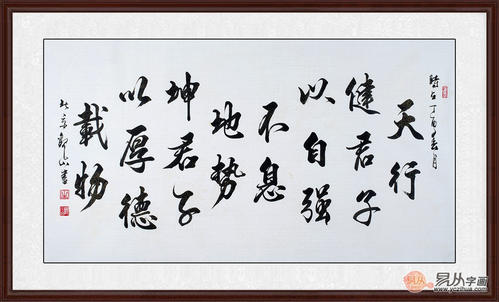 时在丁酉春月
天行
健君子
以自强
不息
地势
坤君子
以厚德
載物
北京郭山書
易从字画
www.yczihua.com